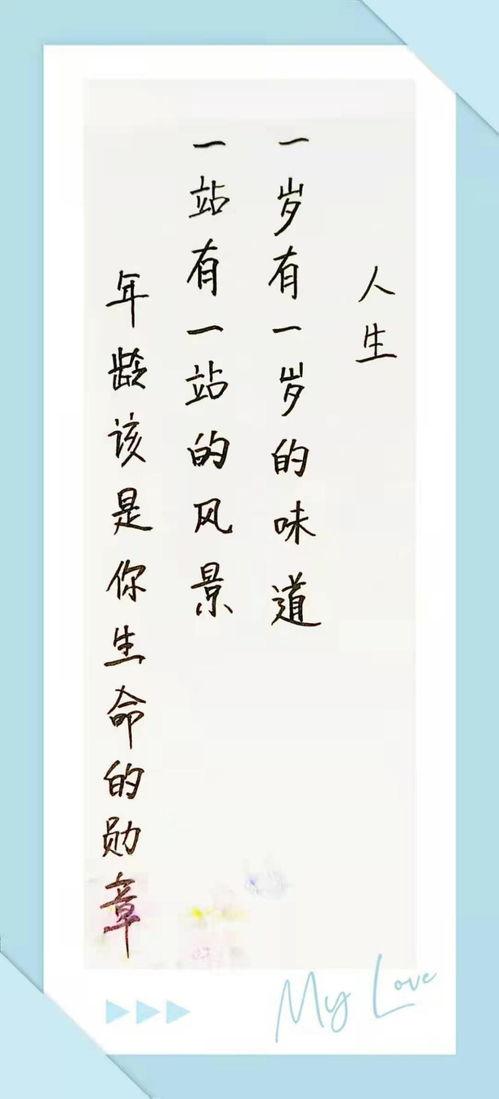 人生
一岁有一岁的味道
一站有一站的风景
年龄该是你生命的勋章
My Love